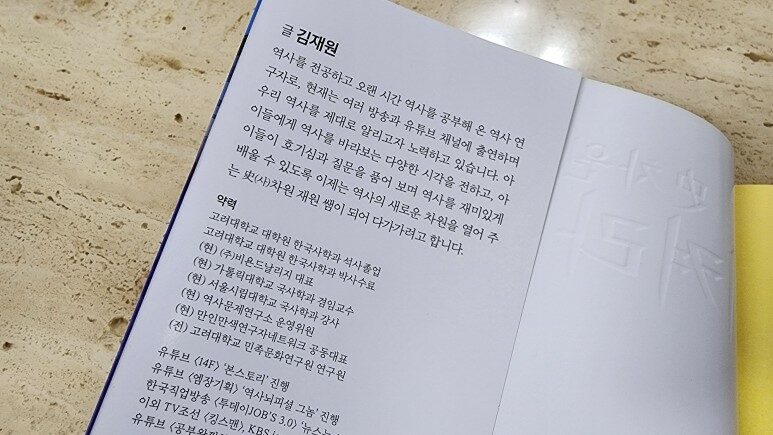 글 김재원
역사를 전공하고 오랜 시간 역사를 공부해 온 역사 연
구자로, 현재는 여러 방송과 유튜브 채널에 출연하며
우리 역사를 제대로 알리고자 노력하고 있습니다. 아
이들에게 역사를 바라보는 다양한 시각을 전하고, 아
이들이 호기심과 질문을 품어 보며 역사를 재미있게
배울 수 있도록 이제는 역사의 새로운 차원을 열어 주
는 史(사)차원 재원 쌤이 되어 다가가려고 합니다.
약력
고려대학교 대학원 한국사학과 석사졸업
고려대학교 대학원 한국사학과 박사수료
(현) (주)비욘드날리지 대표
(현) 가톨릭대학교 국사학과 겸임교수
(현) 서울시립대학교 국사학과 강사
(현) 역사문제연구소 운영위원
(현) 만인만색연구자네트워크 공동대표
(전) 고려대학교 민족문화연구원 연구원
유튜브 〈14F〉 '본스토리' 진행
유튜브 〈엠장기획〉 '역사뇌피셜 그놈' 진행
한국직업방송 〈투데이JOB'S 3.0〉
이외 TV조선 〈킹스맨〉, KBS
유튜브